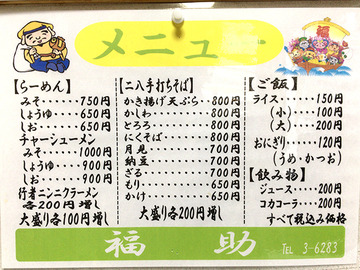 メニュー
【らーめん】
みそ・・・・・750円
しょうゆ・・・650円
しお・・・・・650円
チャーシューメン
みそ・・・・1000円
しょうゆ・・・900円
しお・・・・・900円
行者ニンニクラーメン
各200円増し
大盛り各100円増し
【二八手打ちそば】
かき揚げ天ぷら・・800円
かしわ・・・・・・800円
とろろ・・・・・・800円
にくそば・・・・・800円
月見・・・・・・・700円
納豆・・・・・・・700円
ざる・・・・・・・700円
もり・・・・・・・650円
かけ・・・・・・・650円
大盛り各200円増し
【ご飯】
ライス・・・・・150円
(小)・・・・100円
(大)・・・・200円
おにぎり・・・・120円
(うめ・かつお)
【飲み物】
ジュース・・・・200円
コカコーラ・・・200円
すべて税込み価格
福助
TEL 3-6283